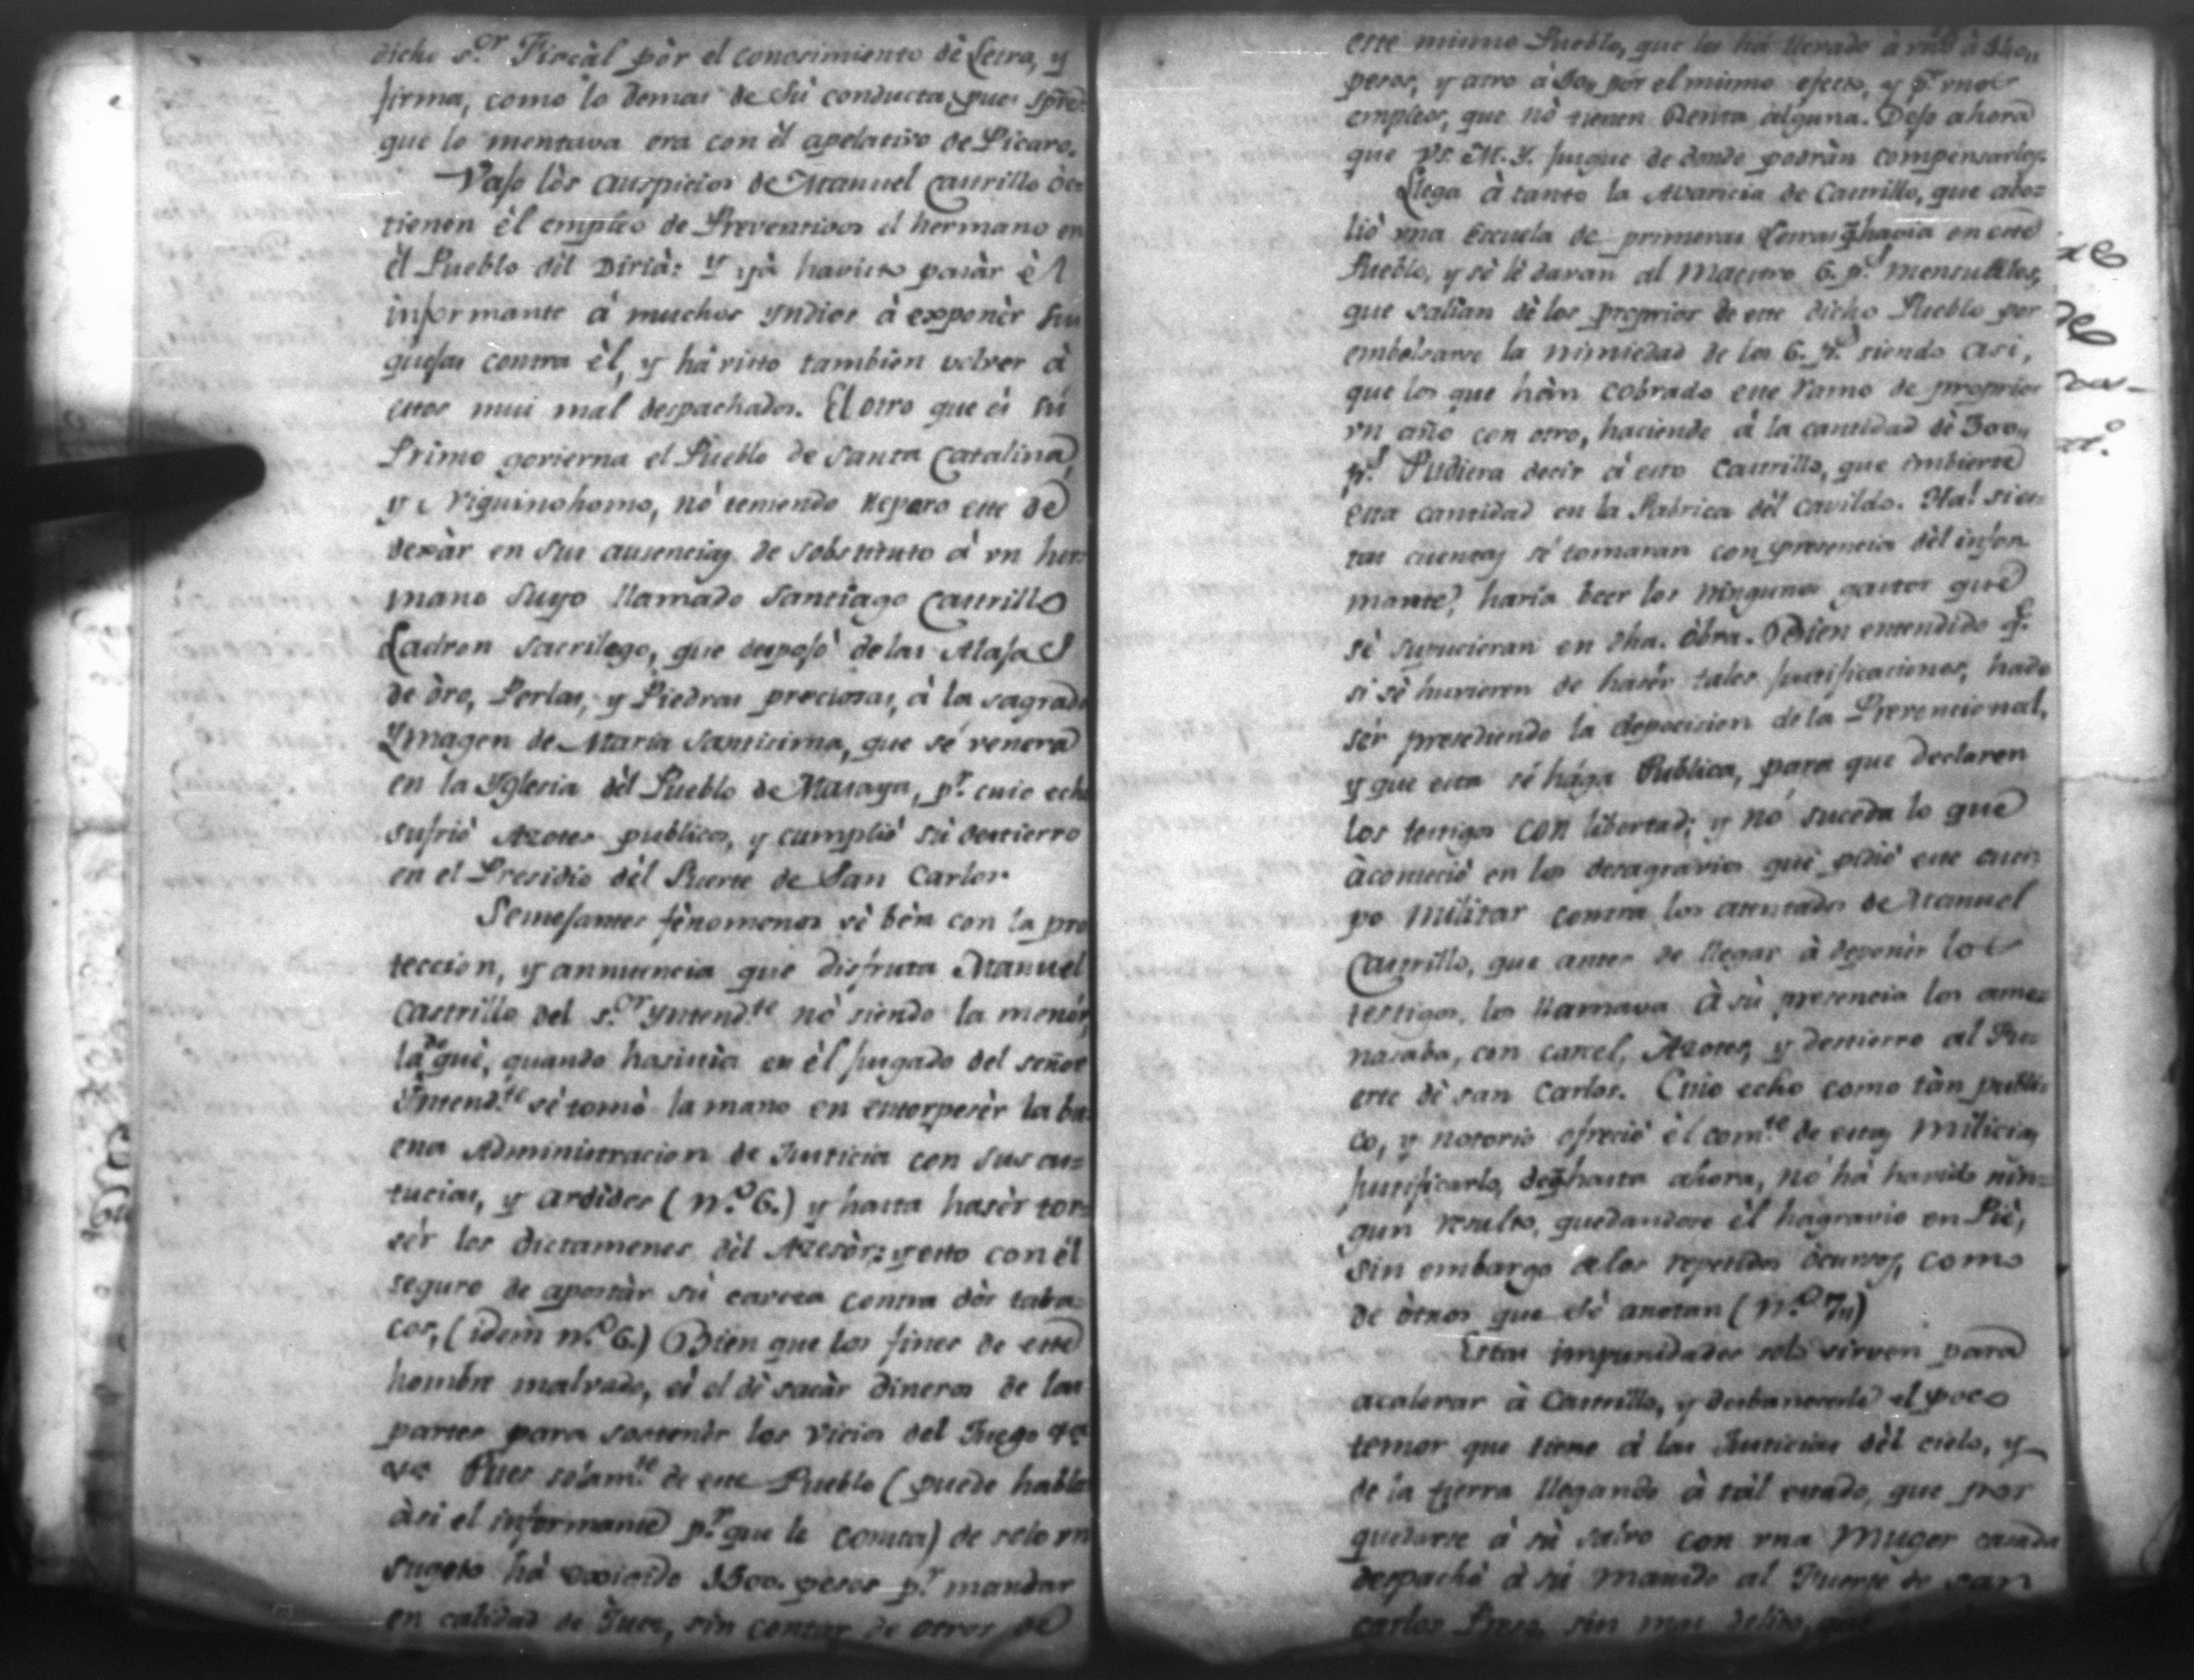 dicho s.or Fiscàl pòr el conosimiento dè Letra, y
firma, como lo demas de sù conducta, pues spre.
que lo mentava era con èl apelativo de Picaro.
Vajo lòs auspicios de Manuel Castrillo òb=
tienen èl empleo de Preventivos el hermano en
èl Pueblo dèl Dirià: Y yà havisto pasàr èl
informante á muchos Yndios á exponèr sus
quejas contra èl, y há visto tambien volver à
estos mui mal despachados. El otro que es sú
Primo govierna el Pueblo de Santa Catalina,
y Niquinohomo, nó teniendo reparo este de
dexàr en sus ausencias de sobstituto á vn her=
mano suyo llamado Santiago Castrillo
Ladron sacrilego, que despojò de las Alajas
de òro, Perlas, y Piedras preciosas, à la sagrada
Ymagen de Maria Santisima, que sé venera
en la Yglesia dèl Pueblo de Masaya, p.r cuio echo
sufriò Azotes publicos, y cumpliò sù destierro
en el Presidio dèl Fuerte de San Carlos.
Semejantes fènomenos sè bèn con la pro
teccion, y annuencia que disfruta Manuel
Castrillo del s.or Yntend.te nò siendo la menòr,
la de què, quando hasistia en èl jusgado del señor
Yntend.te sè tomò la mano en entorpesèr la bu
ena Administracion de Justicia con sus as=
tucias, y ardides (n.o 6.) y hasta hasèr tor=
sèr los dictamenes dèl Azesòr; y esto con èl
seguro de apostàr sù caveza contra dòs taba=
cos, (idem n.o 6.) Bien que los fines de este
hombre malvado, es el dè sacàr dineros de las
partes para sostenèr los vicios del Juego &c
&c Pues solam.te de este Pueblo (puede hablar
àsi el informante p.r que le consta) de solo vn
sugeto há exsigido 1500. pesos p.r mandar
en calidad de Juez, sin contar de otros de
este mismo Pueblo, que los há llevado à
pesos, y otro á por el mismo efecto, y p.r vnos
empleos, que nò tienen Renta alguna. Dejo ahora
que Vs. M. Y. jusgue de donde podràn compensarlos.
Llega à tanto la Avaricia de Castrillo, que abo=
liò vna Escuela de primeras Letras q̃ havia en este
Pueblo, y sè lè davan al Maestro 6. p.s mensuales,
que salian dè los proprios de este dicho Pueblo por
embolsarse la nimiedad de los 6. p.s siendo asi,
que los que hàn cobrado este ramo de proprios
vn año con otro, haciende á la cantidad dè 300,,
p.s Pudiera decir á esto Castrillo, que imbierte
esta cantidad en la Fabrica dèl Cavildo. Ha! si es=
tas cuentas sé tomaran con presencia dèl infor
mante, haria beer los ningunos gastos que
sè supucieran en dha. òbra. Bien entendido q.e
si sè huvieren de hasèr tales justificaciones, hade
sèr presediendo la deposicion de la Prevencional,
y que esta sé hága Publica, para que declaren
los testigos con libertad; y nó suceda lo que
àconteciò en los desagravios que pidiò este cuer
po militar contra los atentados de Manuel
Castrillo, que antes de llegar à deponèr los
testigos, los llamava à sù presencia los ame=
nasaba, con carcel, Azotes, y destierro al Fu=
erte dè san Carlos. Cuio echo como tàn publi=
co, y notorio ofreciò èl com.te de estas Milicias
justificarlo, de q̃ hasta ahora, nó há havido nin=
gun resulto, quedandose èl hágravio en Piè,
sin embargo a los repetidos òcursos, como
de òtros que sè anotan (n.o 7,,)
Estas impunidades solo sirven para
acalorar à Castrillo, y desbanecerle el poco
temor que tiene á las Justicias dèl cielo, y
de la tierra llegando à tàl estado, que por
quedarse á sù salvo con vna Muger casada
despachò á sú marido al Fuerte de san
carlos Preso, sin mas delito, que